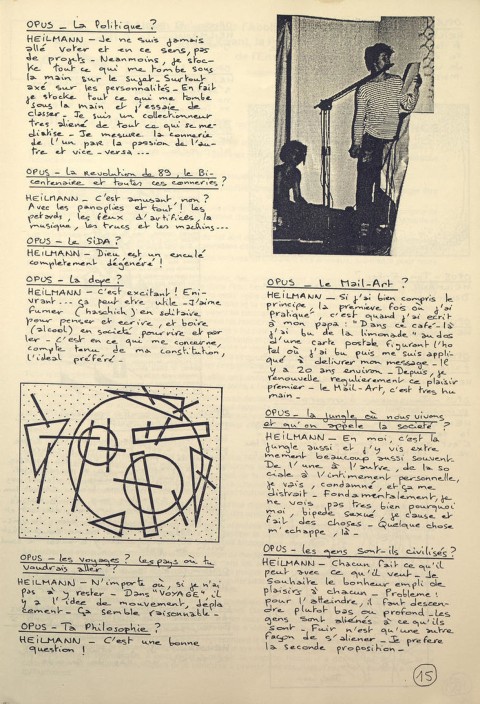 OPUS - La Politique ?
HEILMANN - Je ne suis jamais
allé voter et en ce sens, pas
de projets - Neanmoins, je stoc-
ke tout ce qui me tombe sous
la main sur le sujet - Surtout
axé sur les personnalités - En fait
je stocke tout ce qui me tombe
sous la main et j'essaie de
classer - Je suis un collectionneur
très aliené de tout ce qui se me-
diatise - Je mesure la connerie
de l'un par la passion de l'au-
tre et vice-versa...
OPUS - La revolution de 89, le Bi-
centenaire et toutes ces conneries ?
HEILMANN - C'est amusant, non ?
Avec les panoplies et tout ! les
petards, les feux d'artifices, la
musique, les trucs et les machins...
OPUS - Le SIDA ?
HEILMANN - Dieu est un enculé
completement dégénéré !
OPUS - La dope ?
HEILMANN - C'est excitant ! Eni-
vrant... ça peut etre utile - J'aime
fumer (haschich) en solitaire
pour penser et ecrire, et boire
(alcool) en société, pour rire et par
ler - C'est en ce qui me concerne,
compte tenu de ma constitution,
l'ideal préféré -
OPUS - les voyages ? les pays où tu
voudrais aller ?
HEILMANN - N'importe où, si je n'ai
pas à y rester - Dans "VOYAGE", il
y a l'idée de mouvement, dépla
cement - Ça semble raisonnable -
OPUS - Ta Philosophie ?
HEILMANN - C'est une bonne
question !
OPUS - Le Mail-Art ?
HEILMANN - Si j'ai bien compris le
principe, la première fois où j'ai
pratiqué, c'est quand j'ai écrit
à mon papa : "Dans ce café-là
j'ai bu de la limonade" au dos
d'une carte postale figurant l'ho
tel où j'ai bu puis me suis appli-
qué à delivrer mon message - Il
y a 20 ans environ - Depuis, je
renouvelle regulierement ce plaisir
premier - le Mail-Art, c'est très hu
main -
OPUS - la jungle où nous vivons
et qu'on appele la société ?
HEILMANN - En moi, c'est la
jungle aussi et j'y vis extre
mement beaucoup aussi souvent.
De l'une à l'autre, de la so
ciale à l'intimement personnelle,
je vais, condamné, et ça me
distrait - Fondamentalement, je
ne vois pas très bien pourquoi
moi, bipede sexué, je cause et
fait des choses - Quelque chose
m'echappe, là -
OPUS - les gens sont-ils civilisés ?
HEILMANN - Chacun fait ce qu'il
peut avec ce qu'il veut - Je
souhaite le bonheur empli de
plaisirs à chacun - Problème !
pour l'atteindre, il faut descen-
dre plutot bas ou profond - Les
gens sont aliénés à ce qu'ils
sont - Fuir n'est qu'une autre
façon de s'aliener - Je prefere
la seconde proposition -
15